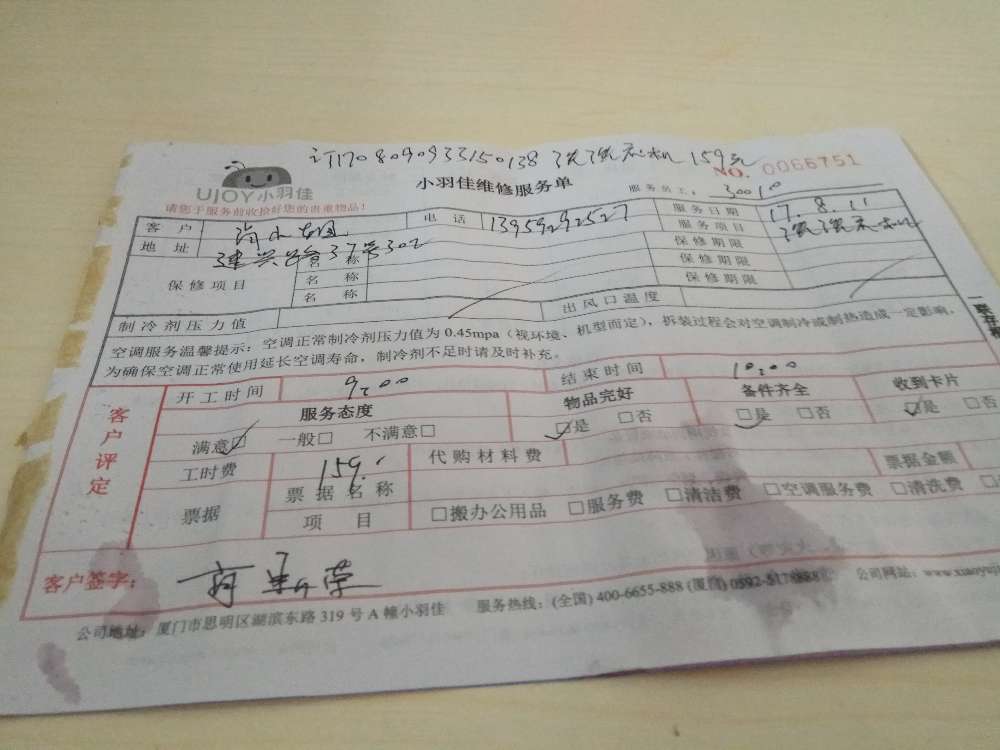 订170809093150138 清洗洗衣机 159元
NO. 0066751
UJOY小羽佳
小羽佳维修服务单
服务员工: 30010
请您于服务前收拾好您的贵重物品!
客 户 电 话 13959292527 服务日期 17.8.11
地 址 建兴 37号302 服务项目 清洗洗衣机
保修项目 名 称 保修期限
名 称 保修期限
名 称 保修期限
制冷剂压力值 出风口温度
空调服务温馨提示: 空调正常制冷剂压力值为 0.45mpa (视环境、机型而定), 拆装过程会对空调制冷或制热造成一定影响。
为确保空调正常使用延长空调寿命, 制冷剂不足时请及时补充。
客户评定
开工时间 9:00 结束时间 10:00
服务态度 物品完好 备件齐全 收到卡片
满意☑ 一般□ 不满意□ ☑是 □否 ☑是 □否 ☑是 □否
工时费 159. 代购材料费
票据 票据名称 票据金额
项 目 □搬办公用品 □服务费 □清洁费 □空调服务费 □清洗费
客户签字:
公司地址: 厦门市思明区湖滨东路 319 号 A 幢小羽佳 服务热线: (全国) 400-6655-888 (厦门) 0592-5179888 公司网址: www.xiaoyuji